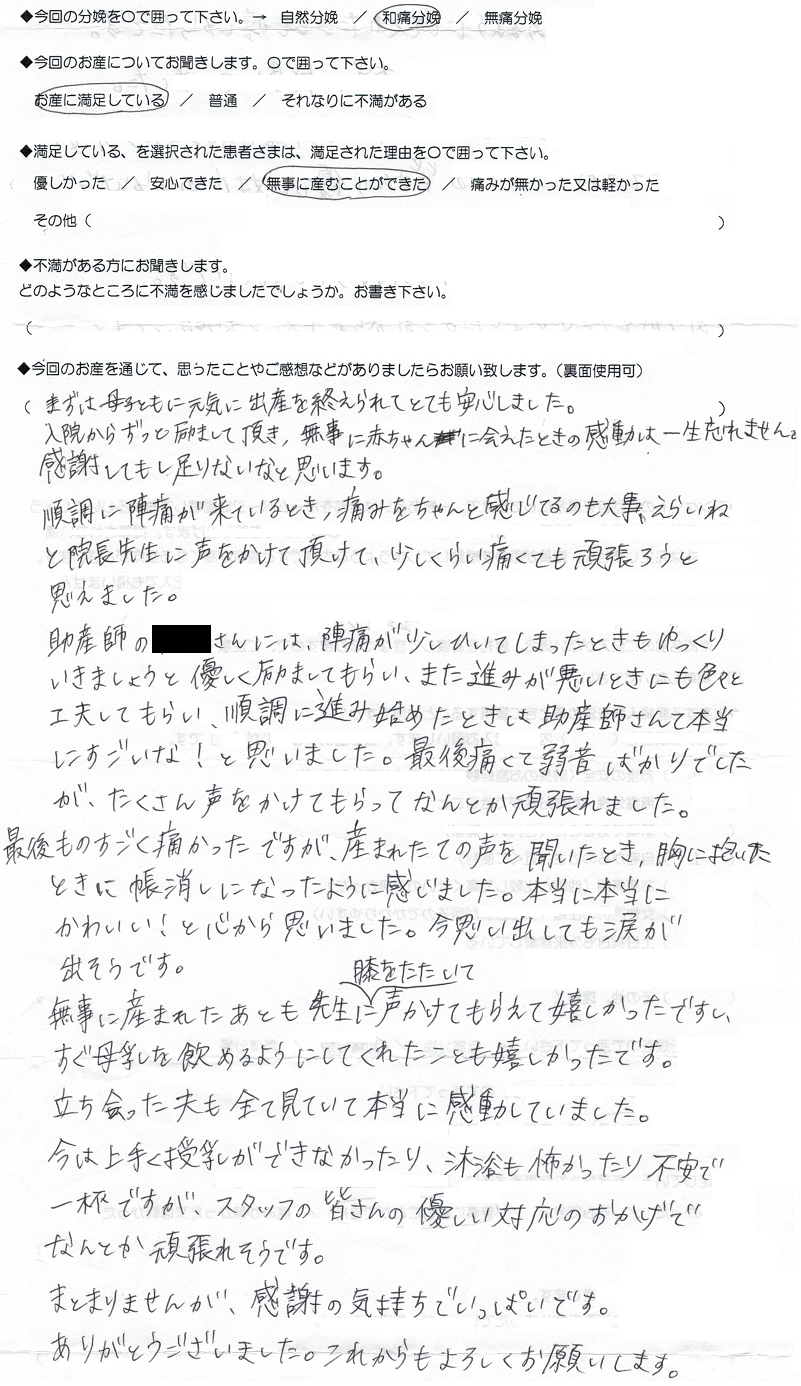 ◆今回の分娩を〇で囲って下さい。→ 自然分娩 ／ 和痛分娩 ／ 無痛分娩
◆今回のお産についてお聞きします。〇で囲って下さい。
お産に満足している ／ 普通 ／ それなりに不満がある
◆満足している、を選択された患者さまは、満足された理由を〇で囲って下さい。
優しかった ／ 安心できた ／ 無事に産むことができた ／ 痛みが無かった又は軽かった
その他（ ）
◆不満がある方にお聞きします。
どのようなところに不満を感じましたでしょうか。お書き下さい。
（ ）
◆今回のお産を通じて、思ったことやご感想などがありましたらお願い致します。（裏面使用可）
（ まずは母子ともに元気に出産を終えられてとても安心しました。 ）
入院からずっと励まして頂き、無事に赤ちゃんに会えたときの感動は一生忘れません。
感謝してもし足りないなと思います。
順調に陣痛が来ているとき、痛みをちゃんと感じてるのも大事、えらいね
と院長先生に声をかけて頂けて、少しくらい痛くても頑張ろうと
思えました。
助産師の さんには、陣痛が少しひいてしまったときもゆっくり
いきましょうと優しく励ましてもらい、また進みが悪いときにも色々と
工夫してもらい、順調に進み始めたときは助産師さんて本当
にすごいな！と思いました。最後痛くて弱音ばかりでした
が、たくさん声をかけてもらってなんとか頑張れました。
最後ものすごく痛かったですが、産まれたての声を聞いたとき、胸に抱いた
ときに帳消しになったように感じました。本当に本当に
かわいい！と心から思いました。今思い出しても涙が
出そうです。
膝をたたいて
無事に産まれたあとも先生に声かけてもらえて嬉しかったですし、
すぐ母乳を飲めるようにしてくれたことも嬉しかったです。
立ち会った夫も全て見ていて本当に感動していました。
今は上手く授乳ができなかったり、沐浴も怖かったり不安で
一杯ですが、スタッフの皆さんの優しい対応のおかげで
なんとか頑張れそうです。
まとまりませんが、感謝の気持ちでいっぱいです。
ありがとうございました。これからもよろしくお願いします。